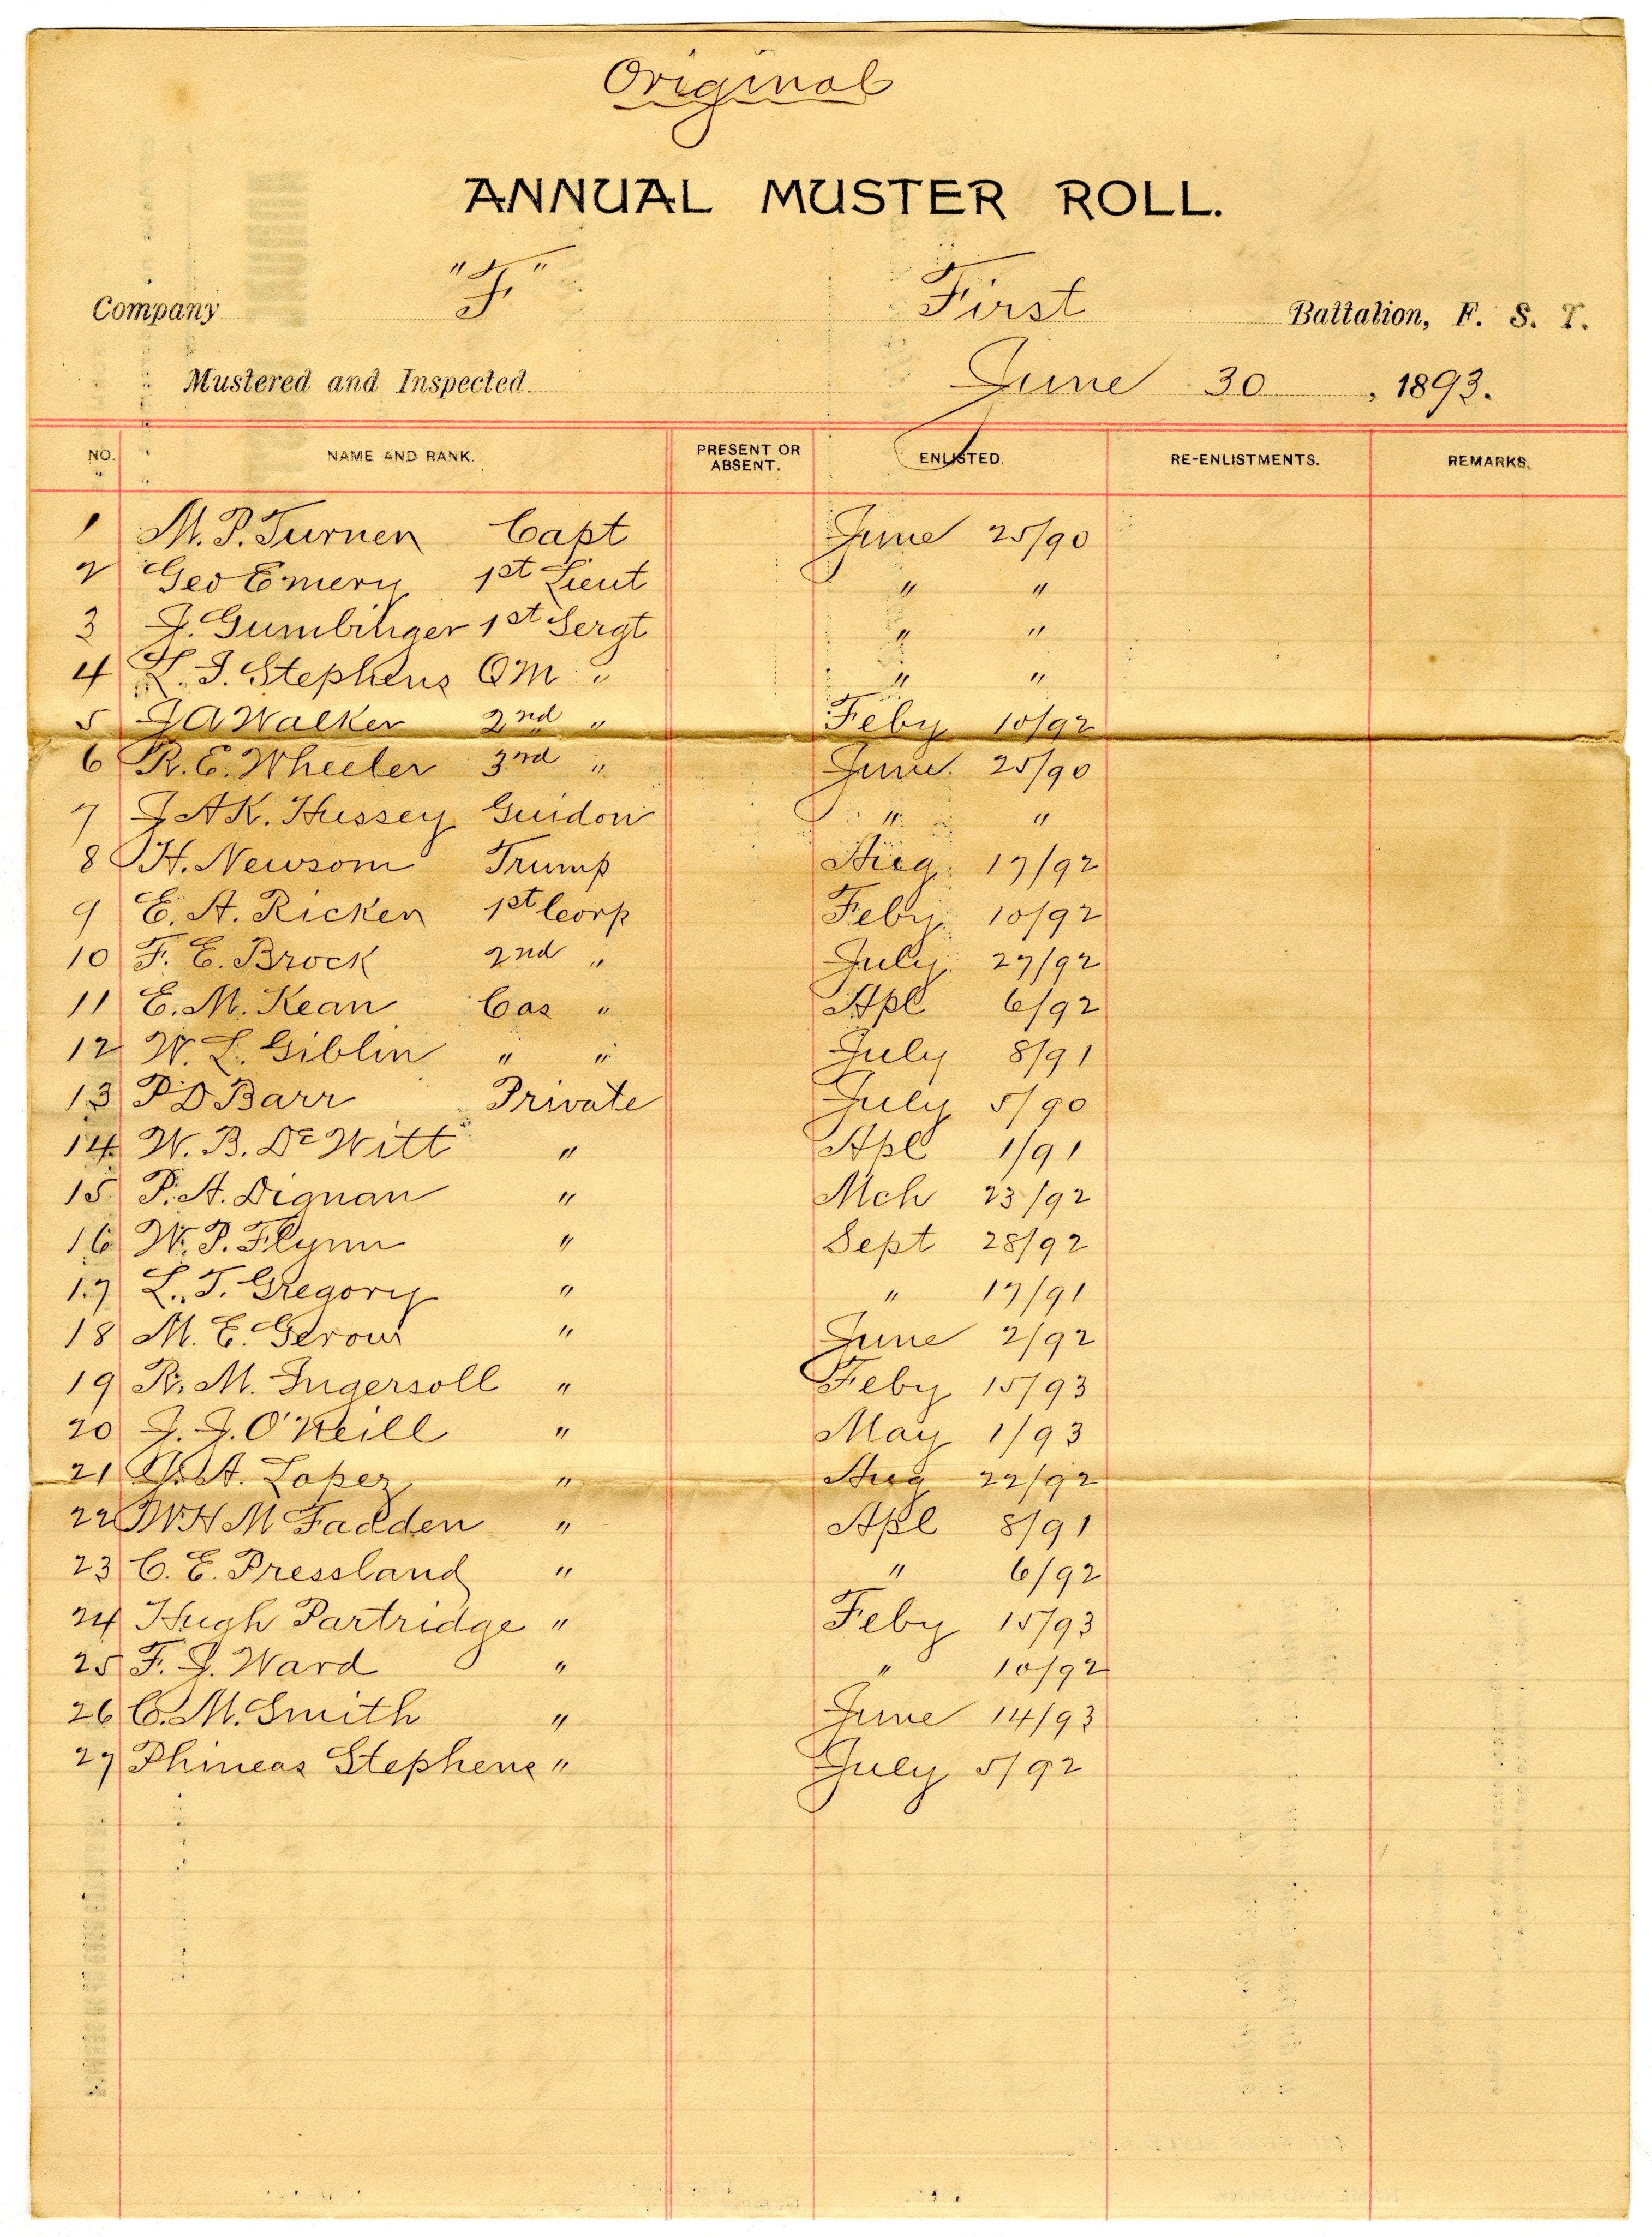 Original
ANNUAL MUSTER ROLL.
Company "F" First Battalion, F. S. T.
Mustered and Inspected June 30, 1893.
NO. NAME AND RANK. PRESENT OR ABSENT. ENLISTED. RE-ENLISTMENTS. REMARKS.
1 M. P. Turner Capt June 25/90
2 Geo Emery 1st Lieut " "
3 J. Gumbinger 1st Sergt " "
4 L. I. Stephens QM " " "
5 J A Walker 2nd " Feby 10/92
6 R. E. Wheeler 3rd " June 25/90
7 J A K. Hussey Guidon " "
8 H. Newsom Trump Aug. 17/92
9 E. A. Ricker 1st Corp Feby 10/92
10 F. E. Brock 2nd " July 27/92
11 E. M. Kean Cas " Apl 6/92
12 W. L. Giblin " " July 8/91
13 P D Barr Private July 5/90
14 W. B. De Witt " Apl 1/91
15 P. A. Dignan " Mch 23/92
16 W. P. Flynn " Sept 28/92
17 L. T. Gregory " " 17/91
18 M. E. Gerow " June 2/92
19 R. M. Ingersoll " Feby 15/93
20 J. J. O'Neill " May 1/93
21 A. Loper " Aug 22/92
22 W H M Fadden " Apl 8/91
23 C. E. Pressland " " 6/92
24 Hugh Partridge " Feby 15/93
25 F. J. Ward " " 10/92
26 C. M. Smith " June 14/93
27 Phineas Stephens " July 5/92